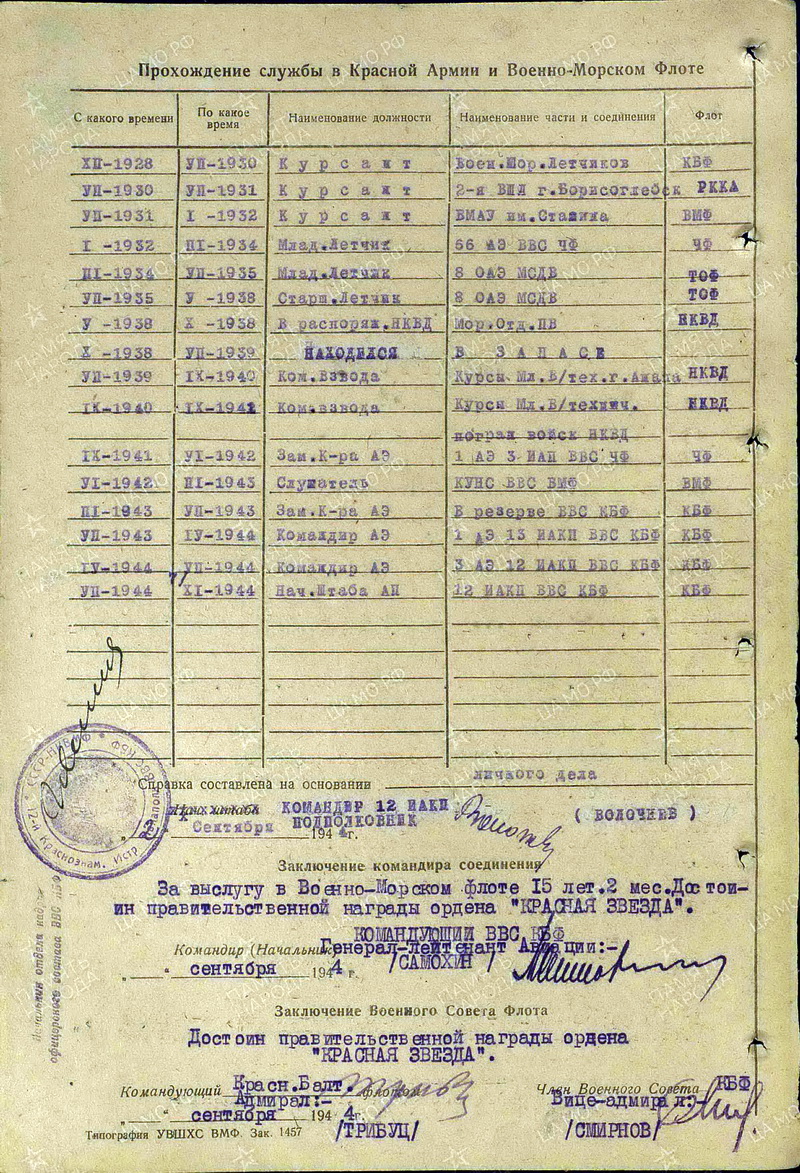 Прохождение службы в Красной Армии и Военно-Морском Флоте
С какого времени По какое время Наименование должности Наименование части и соединения Флот
ХП-1928 УП-1930 Курсант Воен.Мор.Летчиков КБФ
УП-1930 УП-1931 Курсант 2-я ВШЛ г.Борисоглебск РККА
УП-1931 I -1932 Курсант ВМАУ им.Сталина ВМФ
I -1932 Ш-1934 Млад.Летчик 66 АЭ ВВС ЧФ ЧФ
Ш-1934 УП-1935 Млад.Летчик 8 ОАЭ МСДВ ТОФ
УП-1935 У -1938 Старш.Летчик 8 ОАЭ МСДВ ТОФ
У -1938 Х -1938 В распоряж.НКВД Мор.Отд.ПВ НКВД
Х -1938 УП-1939 НАХОДИЛСЯ В ЗАПАСЕ
УП-1939 IХ-1940 Ком.Взвода Курсы Мл.В/тех.г.Анапа НКВД
IХ-1940 IХ-1941 Ком.взвода Курсы Мл.В/технич. НКВД
погран войск НКВД
IХ-1941 УI-1942 Зам.К-ра АЭ 1 АЭ 3 ИАП ВВС ЧФ ЧФ
УI-1942 Ш-1943 Слушатель КУНС ВВС ВМФ ВМФ
Ш-1943 УП-1943 Зам.К-ра АЭ В резерве ВВС КБФ КБФ
УП-1943 IУ-1944 Командир АЭ 1 АЭ 13 ИАКП ВВС КБФ КБФ
IУ-1944 УП-1944 Командир АЭ 3 АЭ 12 ИАКП ВВС КБФ КБФ
УП-1944 ХI-1944 Нач.Штаба АП 12 ИАКП ВВС КБФ КБФ
Справка составлена на основании личного дела
КОМАНДИР 12 ИАКП
ПОДПОЛКОВНИК ( ВОЛОЧНЕВ )
"2" Сентября 1944 г.
Заключение командира соединения
За выслугу в Военно-Морском флоте 15 лет.2 мес.Достои-
ин правительственной награды ордена "КРАСНАЯ ЗВЕЗДА".
КОМАНДУЮЩИЙ ВВС КБФ
Командир (Начальник) Генерал-лейтенант Авиации:-
" " сентября 1944 г. /САМОХИН /
Заключение Военного Совета Флота
Достоин правительственной награды ордена
"КРАСНАЯ ЗВЕЗДА".
Командующий Красн.Балт. флотом Член Военного Совета КБФ
Адмирал:- Вице-адмирал:-
" " сентября 1944 г.
/ТРИБУЦ/ /СМИРНОВ/
Типография УВШХС ВМФ. Зак. 1457
Начальник отдела кадров
офицерского состава ВВС КБФ
12-й Краснознам. Истр
ЦАМО.РФ
ПАМЯТЬ НАРОДА